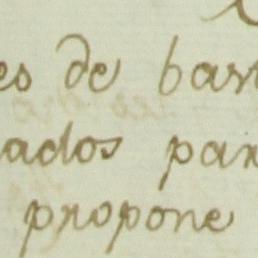 es de bar
ados par
propone